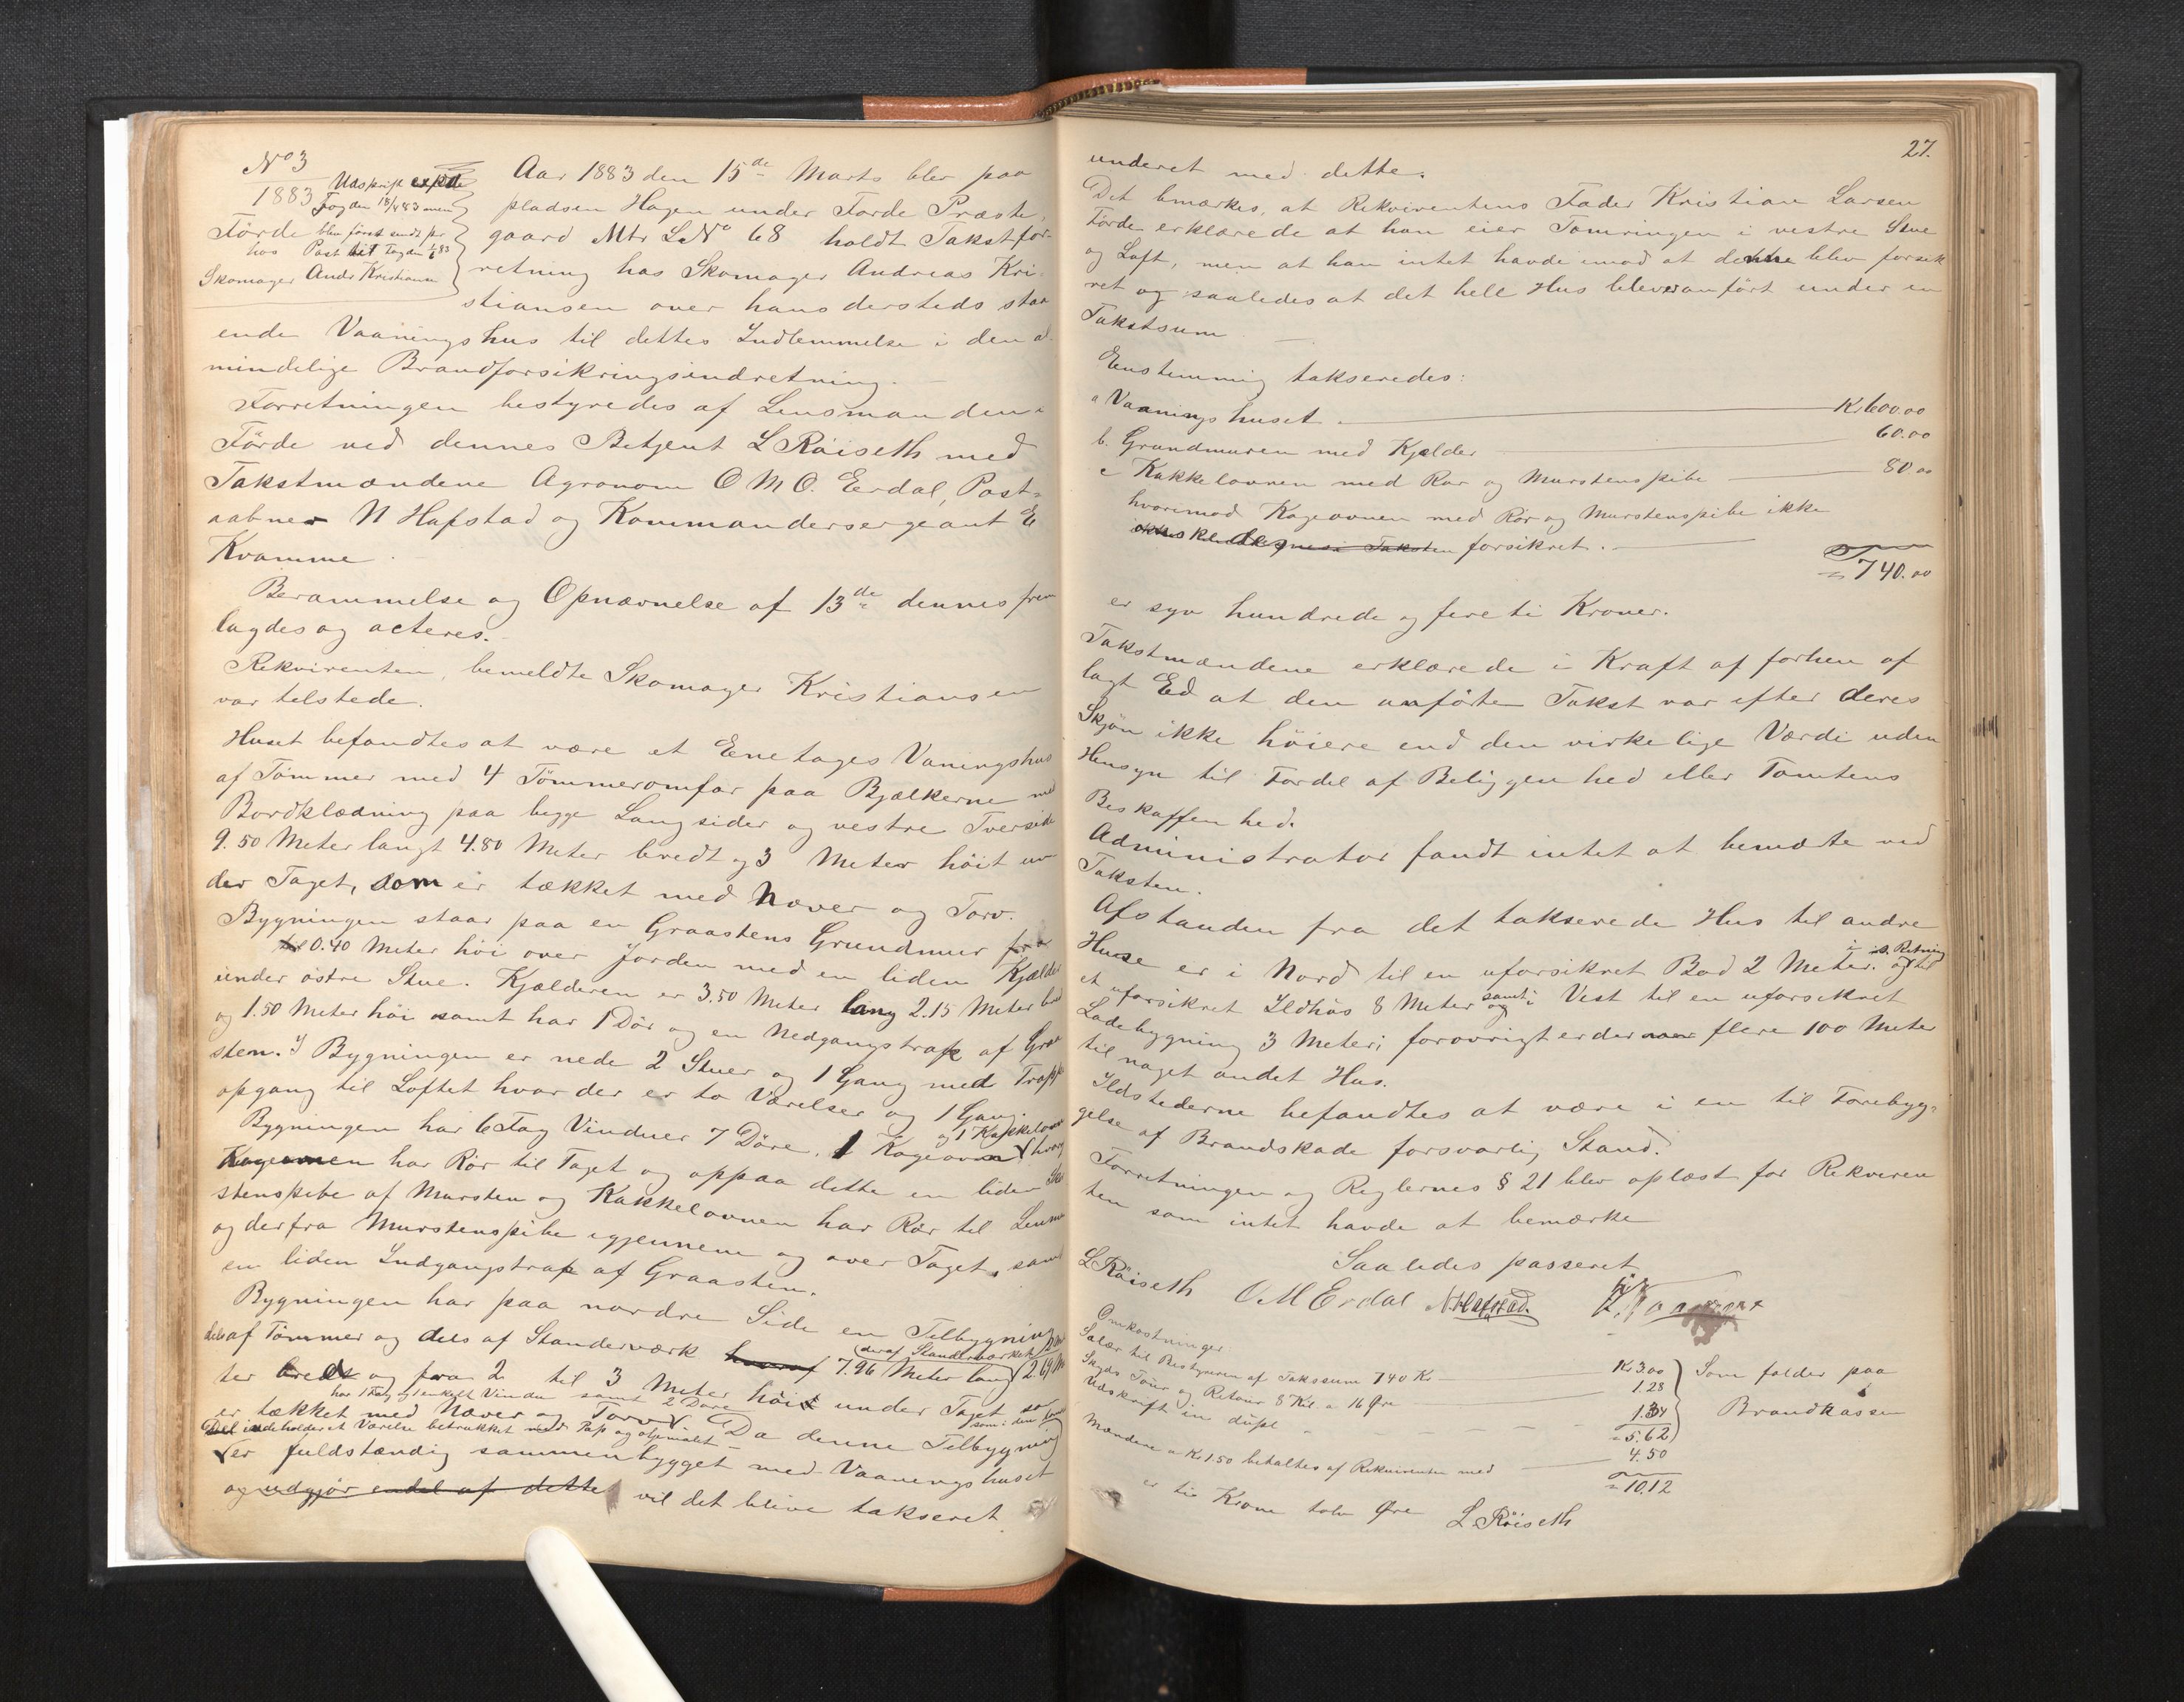 No 3
1883 Udskrift expde
Fogden 18/4 83 men
Förde blev først sendt pr
hos Post til Fogden 1/6 83
Skomager Ands Kristiansen
Aar 1883 den 15de Marts blev paa
pladsen Hagen under Förde Præste-
gaard Mtr LNo 68 holdt Takstfor-
retning hos Skomager Andreas Kri-
stiansen over hans dersteds staa
ende Vaaningshus til dettes Indlemmelse i den al
mindelige Brandforsikringsindretning.
Forretningen bestyredes af Lensmanden i
Förde ved dennes Betjent L Röiseth med
Takstmændene Agronom O M O. Erdal, Post-
aabner N Hafstad og Kommandersergeant E
Kvamme.
Berammelse og Opnævnelse af 13de dennes frem
lagdes og acteres.
Rekvirenten, bemeldte Skomager Kristiansen
var tilstede.
Huset befandtes at være et Enetages Vaningshus
af Tømmer med 4 Tömmeromfar paa Bjælkerne med
Bordklædning paa begge Langsider og vestre Tverside
9.50 Meter langt 4.80 Meter bredt og 3 Meter höit un
der Taget, som er tækket med Næver og Torv.
Bygningen staar paa en Graastens Grundmur fra
til 0.40 Meter höi over Jorden med en liden Kjælder
under östre Stue. Kjælderen er 3.50 Meter lang 2.15 Meter bred
og 1.50 Meter höi samt har 1 Dör og en Nedgangstrap af Graa
sten. I Bygningen er nede 2 Stuer og 1 Gang med Trappe
opgang til Loftet hvor der er to Værelser og 1 Gang.
Bygningen har 6 Fag Vinduer 7 Döre, 1 Kogeovn og 1 Kakkelovn hvoraf
Kogeovnen har Rör til Taget og oppaa dette en liden Sko
stenspibe af Mursten og Kakkelovnen har Rör til Lemme
og derfra Murstenspibe igjennem og over Taget, samt
en liden Indgangstrap af Graasten.
Bygningen har paa nordre Side en Tilbygning
dels af Tömmer og dels af Standerværk hvoraf 7.96 Meter lang (deraf Standerværket 2.69 Me
ter bredt og fra 2 til 3 Meter höit under Taget som
har 1 Fag og 1 enkelt Vindu samt 2 Döre
er tækket med Næver og Torv. Da denne Tilbygning
Del indeholder et Værelse betrukket med Pap og oljemalet –
er fuldstændig sammenbygget med Vaaningshuset
og udgjør endel af dette vil det blive takseret
27.
underet med dette.
Det bmærkes, at Rekvirentens Fader Kristian Larsen
Förde erklærede at han eier Tømringen i vestre Stue
og Loft, men at han intet havde imod at denne blev forsik
ret og saaledes at det hele Hus blev anfört under en
Takstsum
Enstemmig takseredes:
a Vaaningshuset. Kr 600.00
b. Grundmuren med Kjelder 60.00
c Kakkelovnen med Rør og Murstenspibe 80.00
hvorimod Kogeovnen med Rör og Murstenspibe ikke
forsikret.
= 740.00
er syv hundrede og fireti Kroner.
Takstmændene erklærede i Kraft af forhen af
lagt Ed at den anførte Takst var efter deres
Skjøn ikke höiere end den virkelige Værdi uden
Hensyn til Fordel af Beliggenhed eller Tomtens
Beskaffenhed.
Administrator fandt intet at bemærke ved
Taksten.
Afstanden fra det takserede Hus til andre
Huse er i Nord til en uforsikret Bod 2 Meter. og i s. Retning til
et uforsikret Ildhus 8 Meter samt i Vest til en uforsikret
Ladebygning 3 Meter; forøvrigt er der flere 100 Meter
til noget andet Hus.
Ildstederne befandtes at være i en til Forebyg-
gelse af Brandskade forsvarlig Stand.
Forretningen og Reglernes § 21 blev oplæst for Rekviren
ten som intet havde at bemærke
Saaledes passeret
L Röiseth O M Erdal N. Hafstad.
Omkostninger
Salær til Bestyreren af Takssum 740 Kr Kr 3.00
Skyds Tour og Retour 8 Kil. a 16 Øre 1.28
Udskrift in dupl. 1.34
= 5.62
Som falder paa
Brandkassen
Mændene a Kr 1.50 betaltes af Rekvirenten med 4.50
= 10.12
er tie Krone tolv Øre L. Röiseth